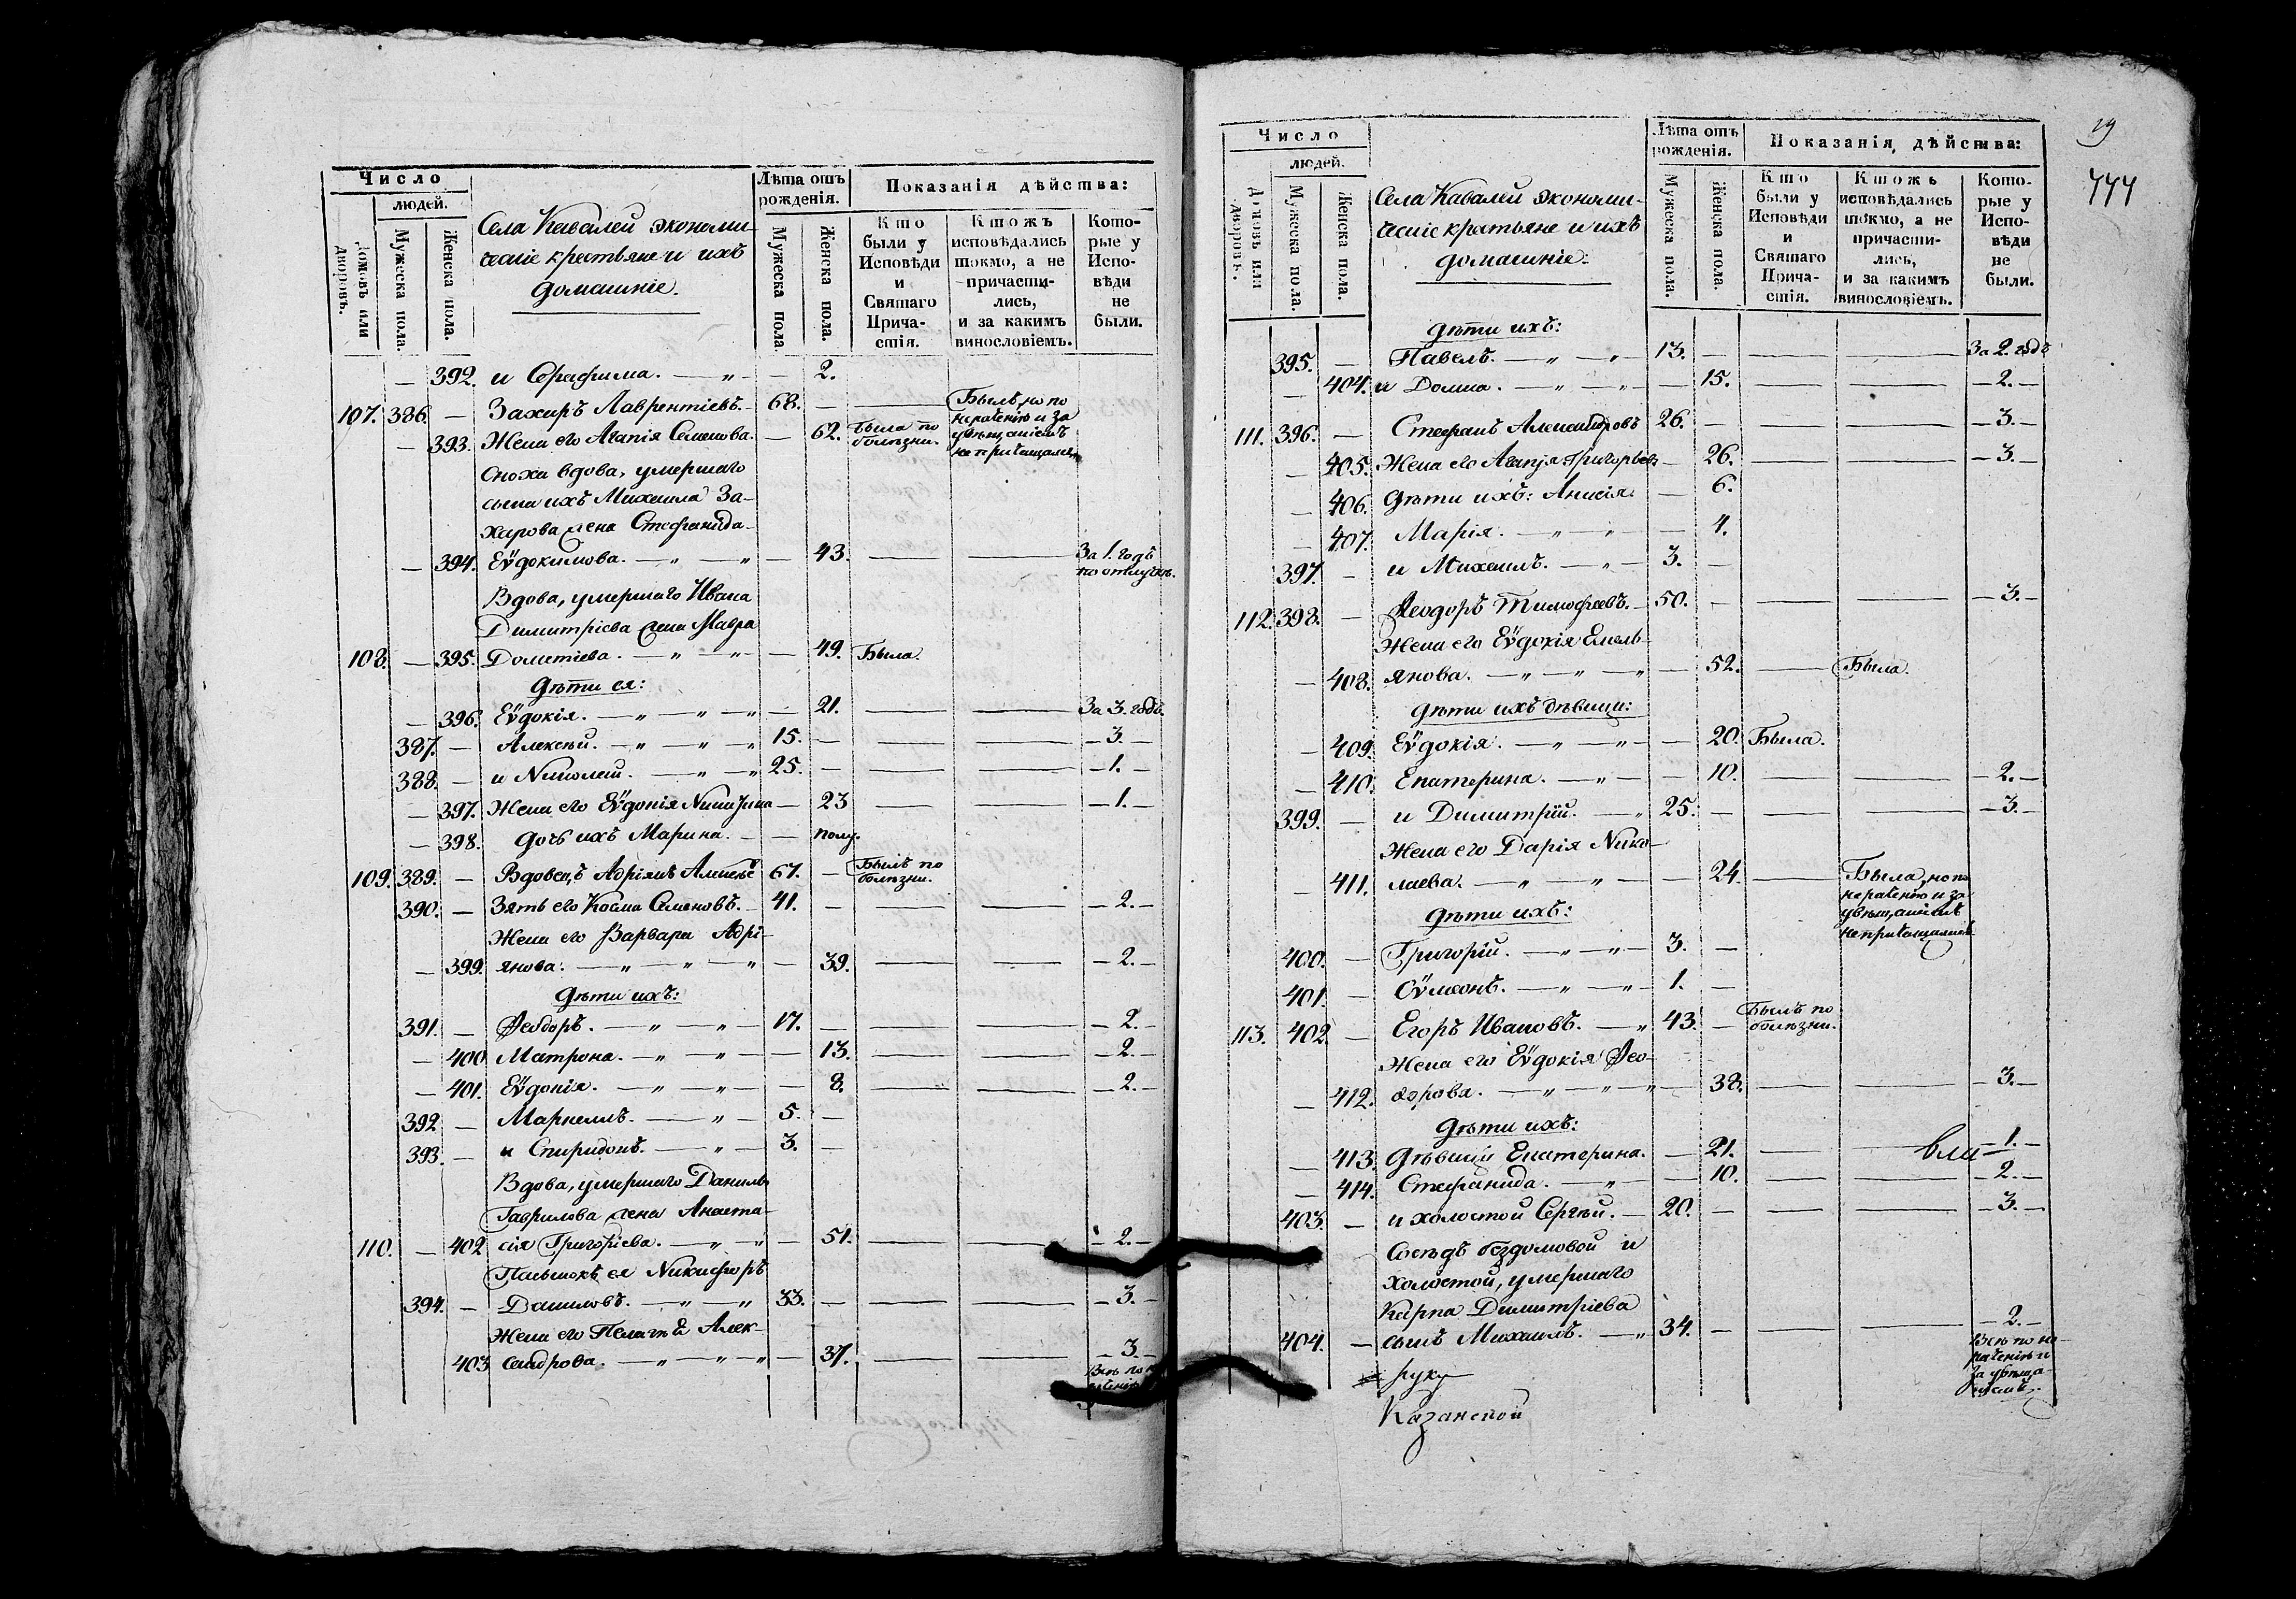 Число
людей.
Домовъ или дворовъ.
Мужеска пола.
Женска пола.
Села Кавалей экономи-
ческіе крестьяне и ихъ
домашніе.
Лѣта отъ рожденія.
Мужеска пола.
Женска пола.
Показанія дѣйства:
Кто были у Исповѣди и Святаго Прича- стія.
Ктожъ исповѣдались токмо, а не причасти- лись, и за какимъ винословіемъ.
Кото- рые у Испо- вѣди не были.
— 392. и Серафима. — „ — — 2.
107. 386. — Захаръ Лаврентіевъ. — 68. — — Былъ, но по нераченію и за увѣщаніемъ не причащался
— 393. Жена его Агапія Семенова. — 62. Была по болѣзни.
Сноха вдова, умершаго
сына ихъ Михаила За-
харова жена Стефанида
— 394. Еѵдокимова. — „ — „ — 43. — — За 1. годъ по отлучкѣ.
Вдова, умершаго Ивана
Димитріева жена Мавра
108. — 395. Дометіева. — „ — „ — 49. Была.
Дѣти ея:
— 396. Еѵдокія. — „ — „ — „ — 21. — — За 3. годъ.
387. — Алексѣй. — „ — „ — „ 15. — — — 3. —
388. — и Николай. — „ — „ 25. — — — 1. —
— 397. Жена его Еѵдокія Никитина — 23 — — — 1. —
— 398. Дочь ихъ Марина. — — полу.
109. 389. — Вдовецъ Адріанъ Алексѣевъ 67. — Былъ по болѣзни.
390. — Зять его Косма Семеновъ. — 41. — — — — 2. —
Жена его Варвара Адрі-
— 399. янова. — „ — „ — „ — 39. — — — 2. —
Дѣти ихъ:
391. — Ѳеодоръ. — „ — „ — 17. — — — — 2. —
— 400. Матрона. — „ — „ — — 13. — — — 2. —
— 401. Еѵдокія. — „ — „ — — 8. — — — 2. —
392. — Маркеллъ. — „ — 5. —
393. — и Спиридонъ. — „ — 3. —
Вдова, умершаго Данилы
Гаврилова жена Анаста-
110. — 402 сія Григорьева. — „ — „ — 51. — — — 2. —
Пасынокъ ея Никифоръ
394. — Даниловъ. — „ — „ 33. — — — — 3. —
Жена его Пелагѣя Алек-
403 сандрова. — „ — „ — „ — 37. — — — 3. —
Всѣ по
29
777
Число
людей.
Домовъ или дворовъ.
Мужеска пола.
Женска пола.
Села Кавалей экономи-
ческіе крестьяне и ихъ
домашніе.
Лѣта отъ рожденія.
Мужеска пола.
Женска пола.
Показанія дѣйства:
Кто были у Исповѣди и Святаго Прича- стія.
Ктожъ исповѣдались токмо, а не причасти- лись, и за какимъ винословіемъ.
Кото- рые у Испо- вѣди не были.
Дѣти ихъ:
395. — Павелъ. — „ — „ — 13. — — — За 2. годъ
— 404. и Домна. — „ — „ — — 15. — — — 2. —
111. 396. — Стефанъ Александровъ 26. — — — — 3. —
— 405. Жена его Агапія Григорьева — 26. — — — 3. —
— 406. Дѣти ихъ: Анисія. — 6.
— 407. Марія. — „ — „ — — 4.
397. — и Михаилъ. — „ — 3. —
112. 398. — Ѳеодоръ Тимофеевъ. — 50. — — — — 3. —
Жена его Еѵдокія Емель-
— 408. янова. — „ — „ — „ — 52. — Была.
Дѣти ихъ дѣвицы:
— 409. Еѵдокія. — „ — „ — — 20. Была.
— 410. Екатерина. — „ — — 10. — — — 2. —
399. — и Димитрій. — „ 25. — — — — 3. —
Жена его Дарія Нико-
— 411. лаева. — „ — „ — — 24. — Была, но по нераченію и за увѣщаніемъ не причащалась
Дѣти ихъ:
400. — Григорій. — „ — „ — 3. —
401. — Сѵмеонъ. — „ — „ — 1. —
113. 402. — Егоръ Ивановъ. — „ 43. — Былъ по болѣзни.
Жена его Еѵдокія Ѳео-
— 412. дорова. — „ — „ — „ — 38. — — — 3. —
Дѣти ихъ:
— 413. Дѣвицы Екатерина. — 21. — — — 1. —
— 414. Стефанида. — „ — — 10. — — — 2. —
403. — и холостой Сергѣй. — 20. — — — — 3. —
Сосѣдъ бездомовой и
холостой, умершаго
Карпа Димитріева
404. — сынъ Михаилъ. — „ 34. — — — — 2. —
Всѣ по не-
раченію и
за увѣща-
ніемъ.
руку
Казанской